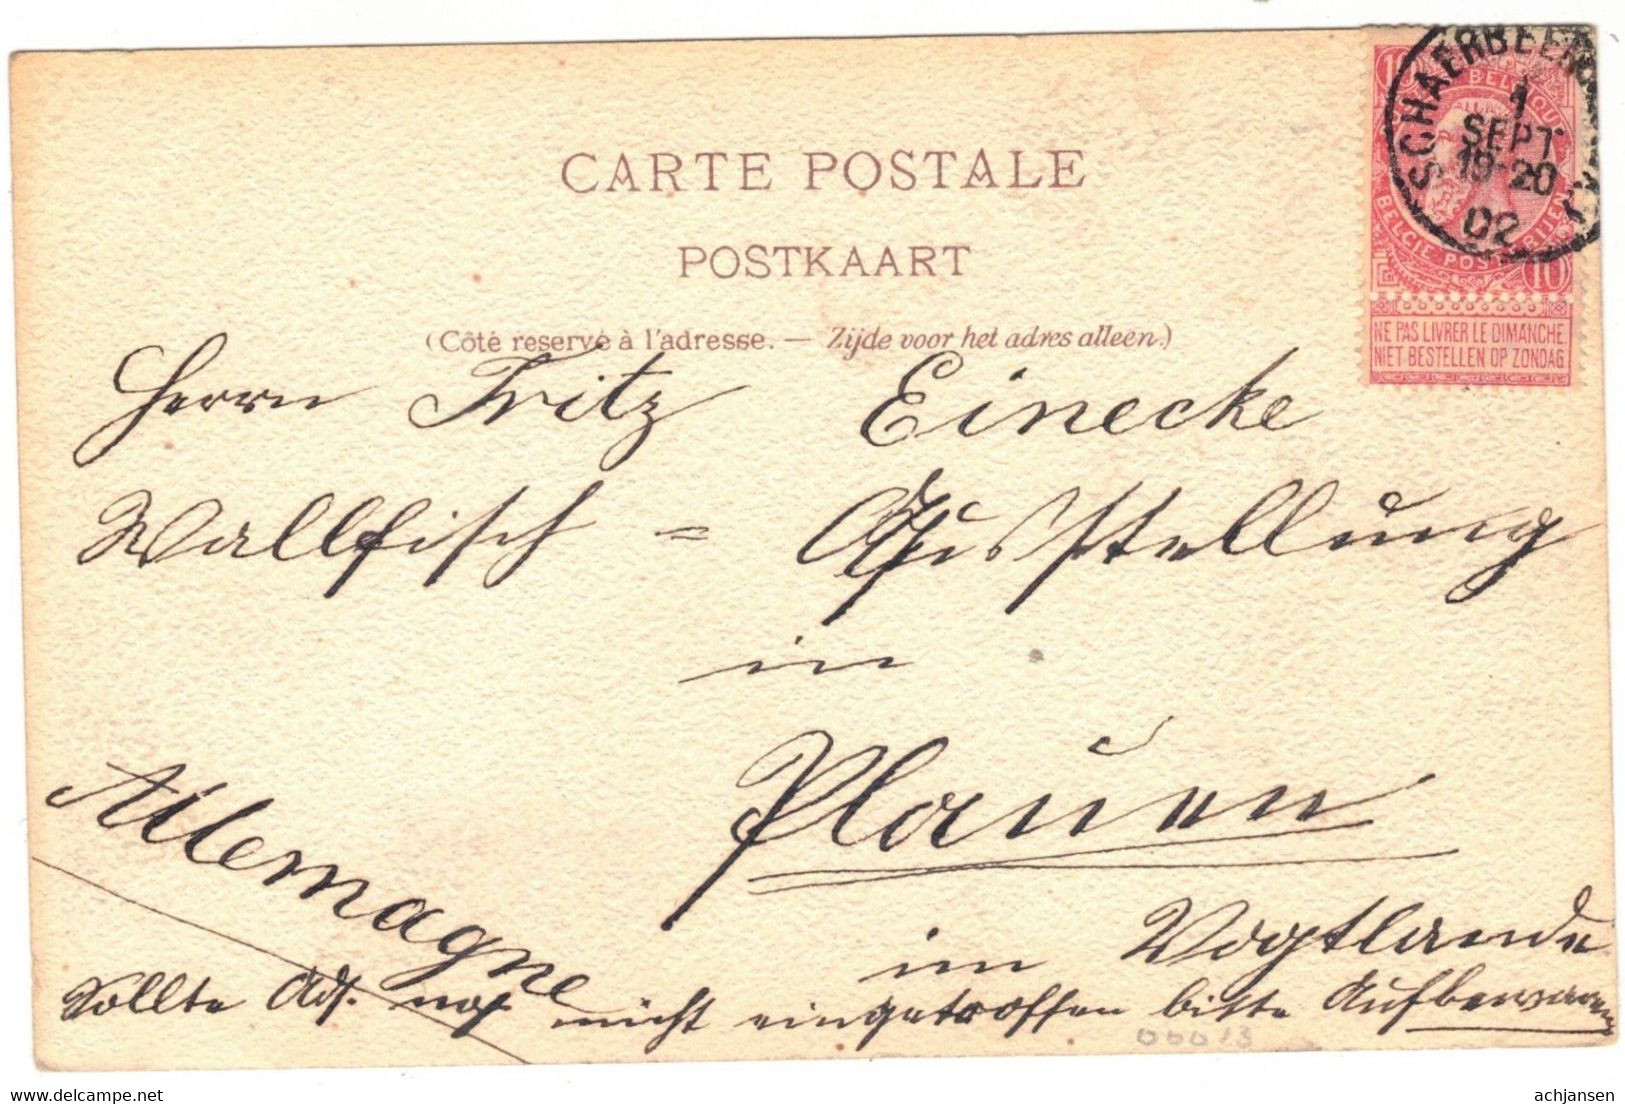 CARTE POSTALE
POSTKAART
(Côté reservé à l'adresse. — Zijde voor het adres alleen.)
SCHAERBEEK
1
SEPT
19-20
02
10
BELGIQUE
BELGIE POSTERIJEN
10
NE PAS LIVRER LE DIMANCHE
NIET BESTELLEN OP ZONDAG
Herrn Fritz Einecke
Wallfisch = Ausstellung
in
Plauen
im Vogtlande
Allemagne
Sollte Adr. noch nicht eingetroffen bitte Aufbewaren
00013
delcampe.net
achjansen